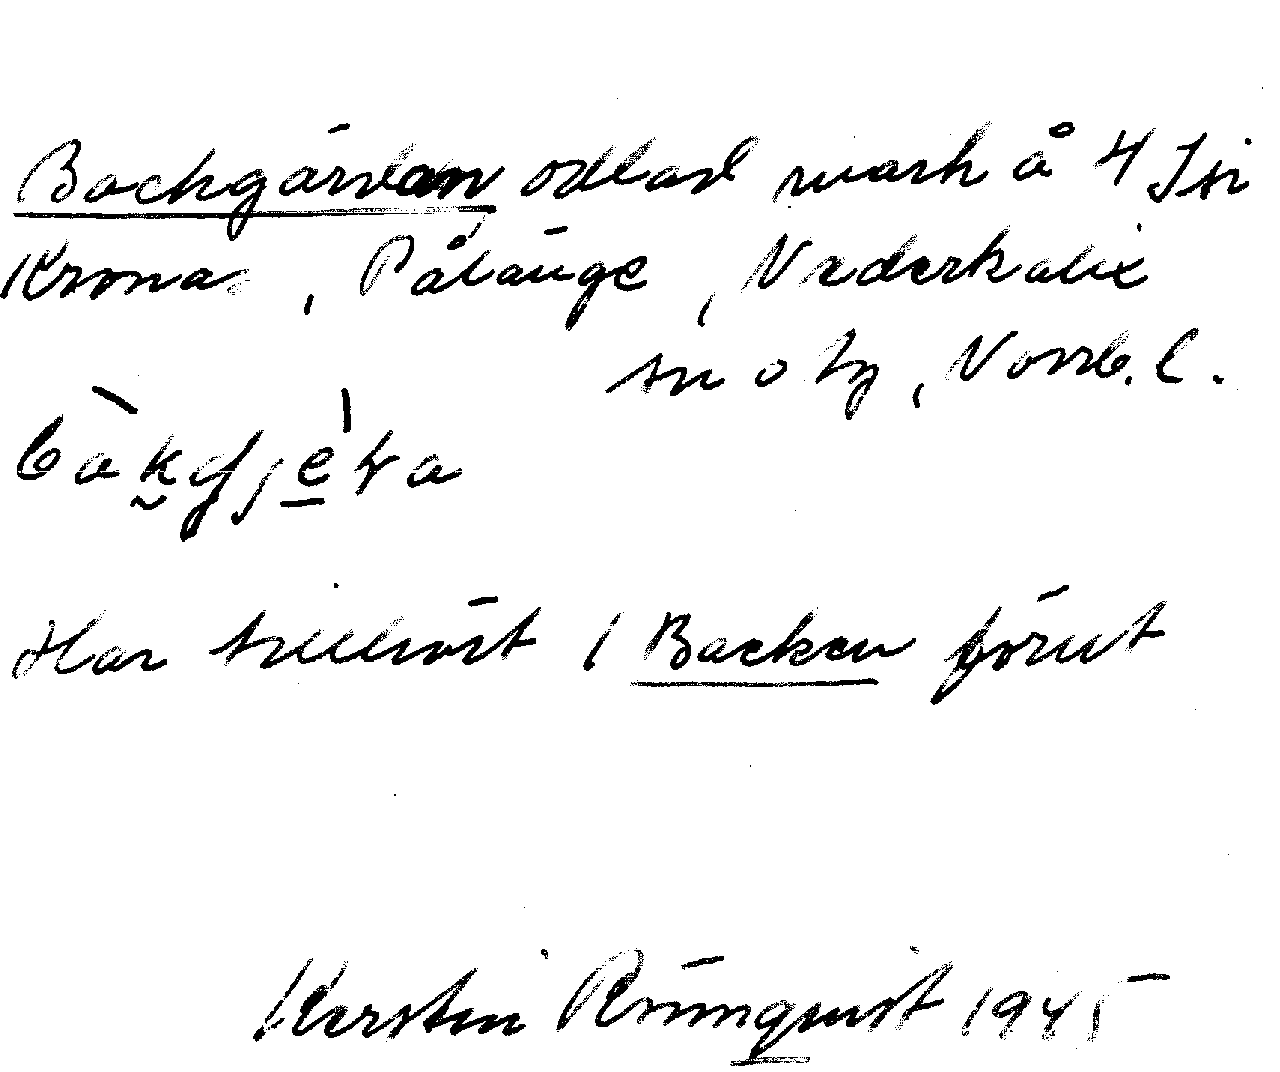 Backgärdan odlad mark å 4 Isi
Kronas, Pålänge, Nederkalix
sn o tg, Norrb. l.
bàkgjèra
Har tillhört 1 Backen förut
Kerstin Rönnquist 1945